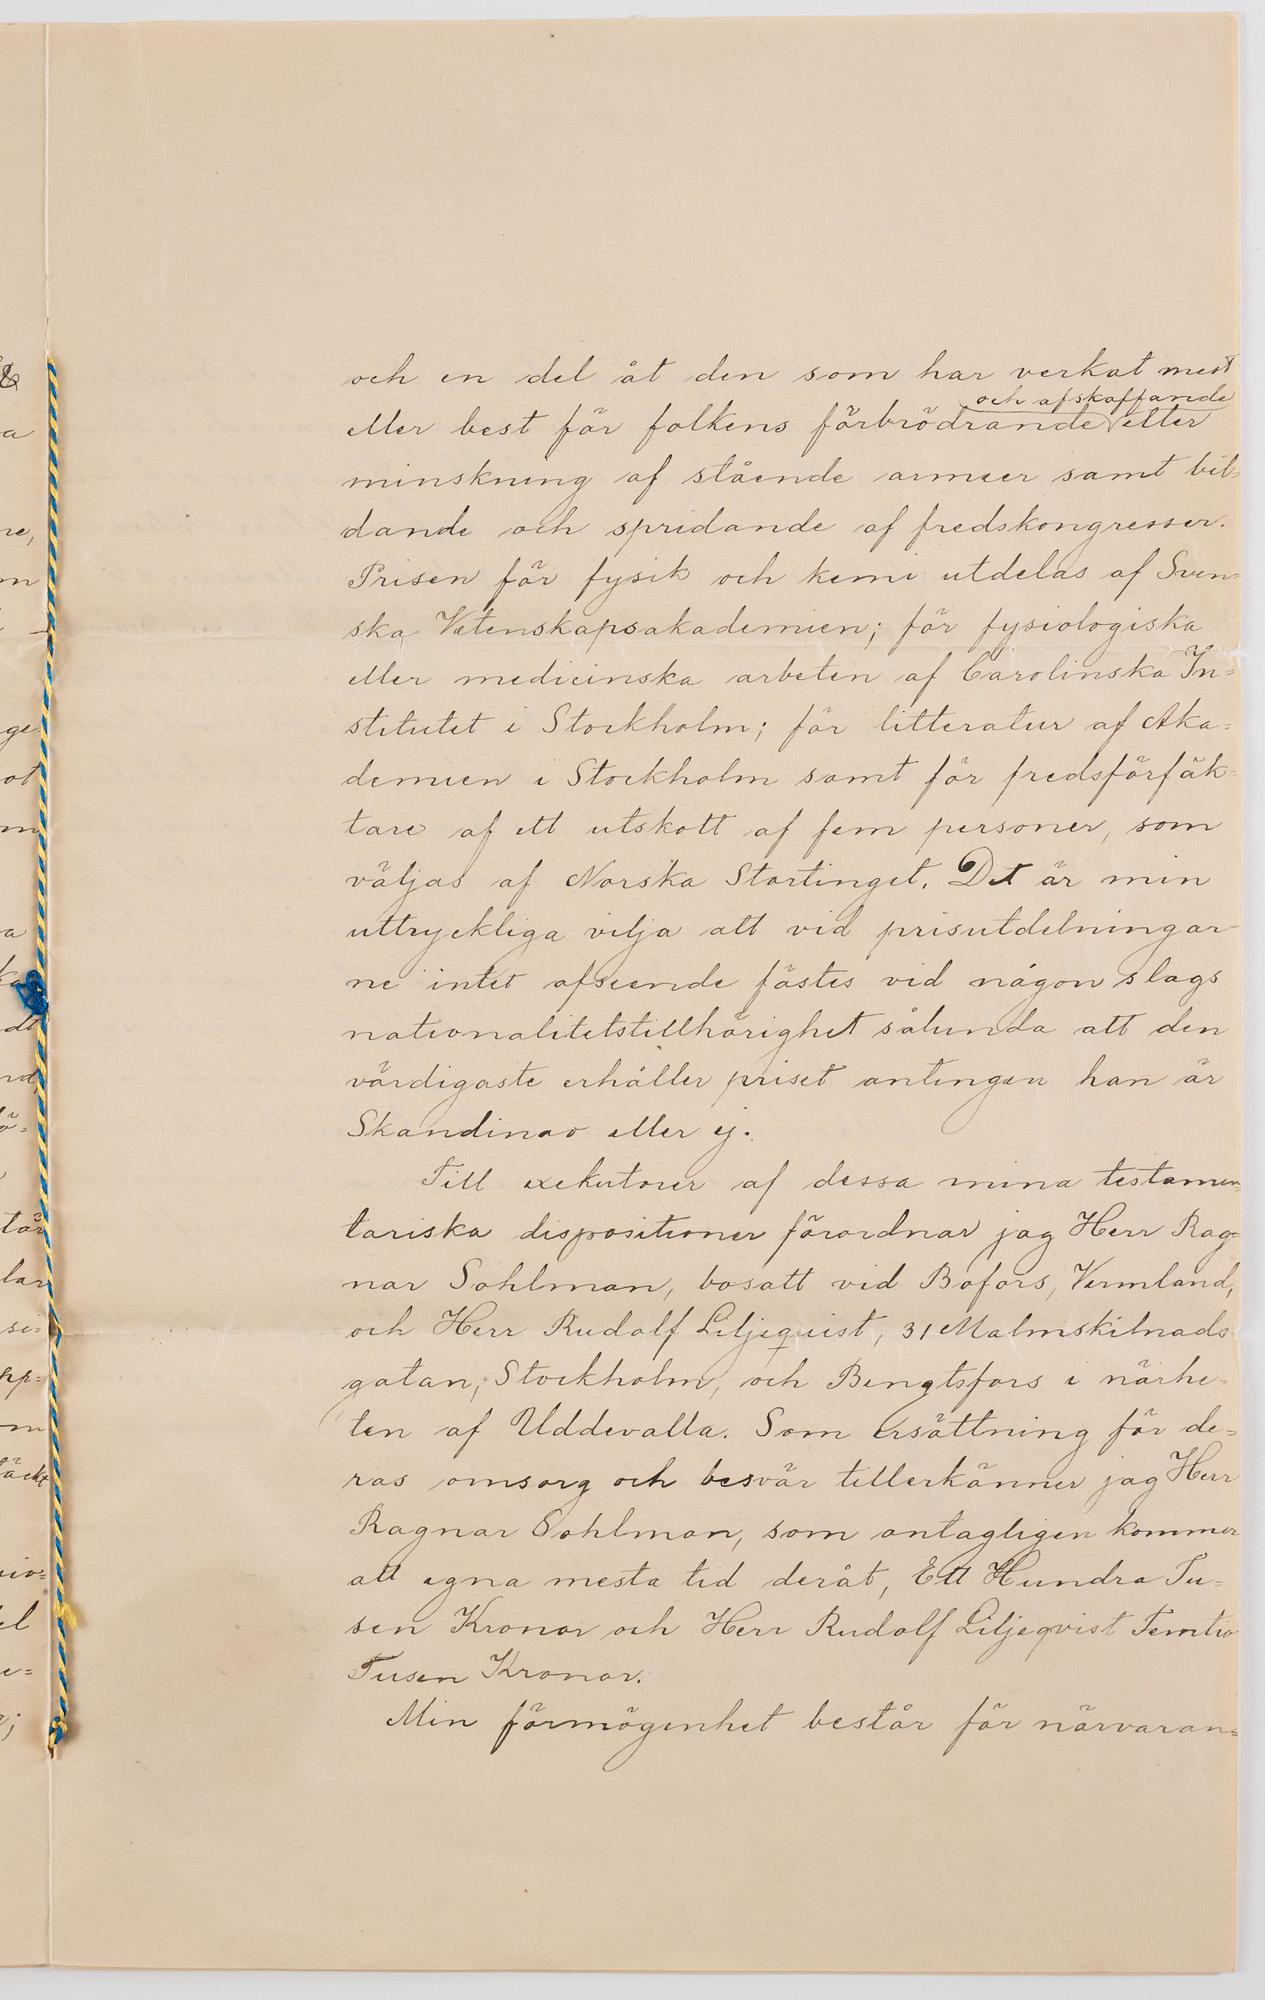 och en del åt den som har verkat mest
och afskaffande
eller best för folkens förbrödrande eller
minskning af stående armeer samt bil-
dande och spridande af fredskongresser.
Prisen för fysik och kemi utdelas af Sven-
ska Vetenskapsakademien; för fysiologiska
eller medicinska arbeten af Carolinska In-
stitutet i Stockholm; för litteratur af Aka-
demien i Stockholm samt för fredsförfäk-
tare af ett utskott af fem personer, som
väljas af Norska Stortinget. Det är min
uttryckliga vilja att vid prisutdelningar-
ne intet afseende fästes vid någon slags
nationalitetstillhörighet sålunda att den
värdigaste erhåller priset antingen han är
Skandinav eller ej.
Till exekutorer af dessa mina testamen-
tariska dispositioner förordnar jag Herr Rag-
nar Sohlman, bosatt vid Bofors, Vermland,
och Herr Rudolf Liljequist, 31 Malmskilnads-
gatan, Stockholm, och Bengtsfors i närhe-
ten af Uddevalla. Som ersättning för de-
ras omsorg och besvär tillerkänner jag Herr
Ragnar Sohlman, som antagligen kommer
att egna mesta tid deråt, Ett Hundra Tu-
sen Kronor och Herr Rudolf Liljeqvist Femtio
Tusen Kronor.
Min förmögenhet består för närvaran-